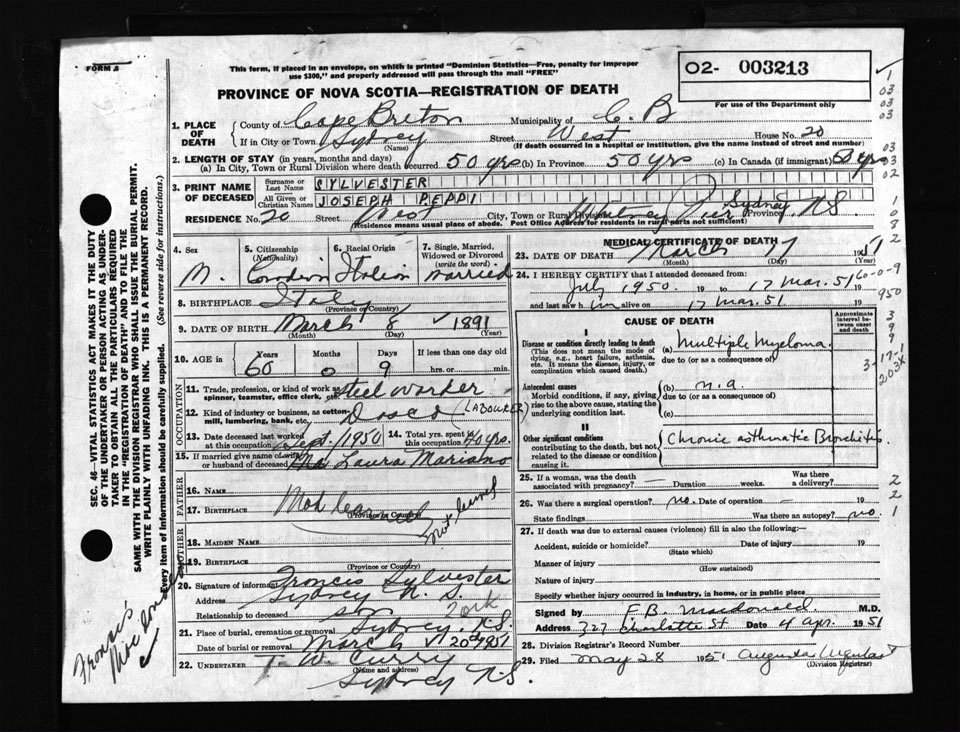 FORM 5
This form, if placed in an envelope, on which is printed "Dominion Statistics—Free, penalty for improper
use $300," and properly addressed will pass through the mail "FREE"
O2- 003213
For use of the Department only
PROVINCE OF NOVA SCOTIA—REGISTRATION OF DEATH
1. PLACE OF DEATH County of Cape Breton Municipality of C. B
If in City or Town Sydney (Name) Street West House No. 20
(If death occurred in a hospital or institution, give the name instead of street and number)
2. LENGTH OF STAY (in years, months and days)
(a) In City, Town or Rural Division where death occurred 50 yrs (b) In Province 50 yrs (c) In Canada (if immigrant) 50 yrs
3. PRINT NAME OF DECEASED Surname or Last Name SYLVESTER
All Given or Christian Names JOSEPH PEPPI
RESIDENCE No. 20 Street West City, Town or Rural Division Whitney Pier Sydney Province N.S.
(Residence means usual place of abode. Post Office Address for residents in rural parts not sufficient)
4. Sex M.
5. Citizenship (Nationality) Canadian
6. Racial Origin Italian
7. Single, Married, Widowed or Divorced (write the word) Married
8. BIRTHPLACE Italy (Province or Country)
9. DATE OF BIRTH March (Month) 8 (Day) 1891 (Year)
10. AGE in Years 60 Months 0 Days 9 If less than one day old hrs. or min.
OCCUPATION
11. Trade, profession, or kind of work as spinner, teamster, office clerk, etc. Steel worker
12. Kind of industry or business, as cotton-mill, lumbering, bank, etc. Dosco (LABOURER)
13. Date deceased last worked at this occupation Sept. 1950
14. Total yrs. spent in this occupation 40 yrs.
15. If married give name of wife or husband of deceased Laura Mariano
FATHER
16. Name
17. BIRTHPLACE (Province or Country)
Not learned
MOTHER
18. MAIDEN NAME
19. BIRTHPLACE (Province or Country)
20. Signature of informant Francis Sylvester
Address Sydney N. S.
Relationship to deceased son
21. Place of burial, cremation or removal Sydney N.S.
Date of burial or removal March 20th 1951
22. UNDERTAKER T. W. Curry
(Name and address)
Sydney N.S.
MEDICAL CERTIFICATE OF DEATH
23. DATE OF DEATH March (Month) 17 (Day) 1951 (Year)
24. I HEREBY CERTIFY that I attended deceased from:
July 1950. to 17 Mar. 51 19
and last saw him alive on 17 Mar. 51 19
CAUSE OF DEATH
Approximate interval between onset and death
I
Disease or condition directly leading to death (a) Multiple Myeloma.
(This does not mean the mode of dying, e.g., heart failure, asthenia, etc. It means the disease, injury, or complication which caused death.)
due to (or as a consequence of)
Antecedent causes (b) n.a.
Morbid conditions, if any, giving rise to the above cause, stating the underlying condition last.
due to (or as a consequence of)
(c)
II
Other significant conditions Chronic asthmatic Bronchitis
contributing to death, but not related to the disease or condition causing it.
25. If a woman, was the death associated with pregnancy? — Duration weeks. Was there a delivery?
26. Was there a surgical operation? no. Date of operation — 19
State findings Was there an autopsy? no.
27. If death was due to external causes (violence) fill in also the following:—
Accident, suicide or homicide? Date of injury 19
(State which)
Manner of injury
(How sustained)
Nature of injury
Specify whether injury occurred in industry, in home, or in public place
Signed by F.B. Macdonald M.D.
Address 327 Charlotte St Date 4 Apr. 1951
28. Division Registrar's Record Number
29. Filed May 28 1951 Augusta
(Division Registrar)
SEC. 46—VITAL STATISTICS ACT MAKES IT THE DUTY
OF THE UNDERTAKER OR PERSON ACTING AS UNDERTAKER TO OBTAIN ALL THE PARTICULARS REQUIRED
IN THE "REGISTRATION OF DEATH" AND TO FILE THE
SAME WITH THE DIVISION REGISTRAR WHO SHALL ISSUE THE BURIAL PERMIT.
WRITE PLAINLY WITH UNFADING INK. THIS IS A PERMANENT RECORD.
Every item of information should be carefully supplied. (See reverse side for instructions.)